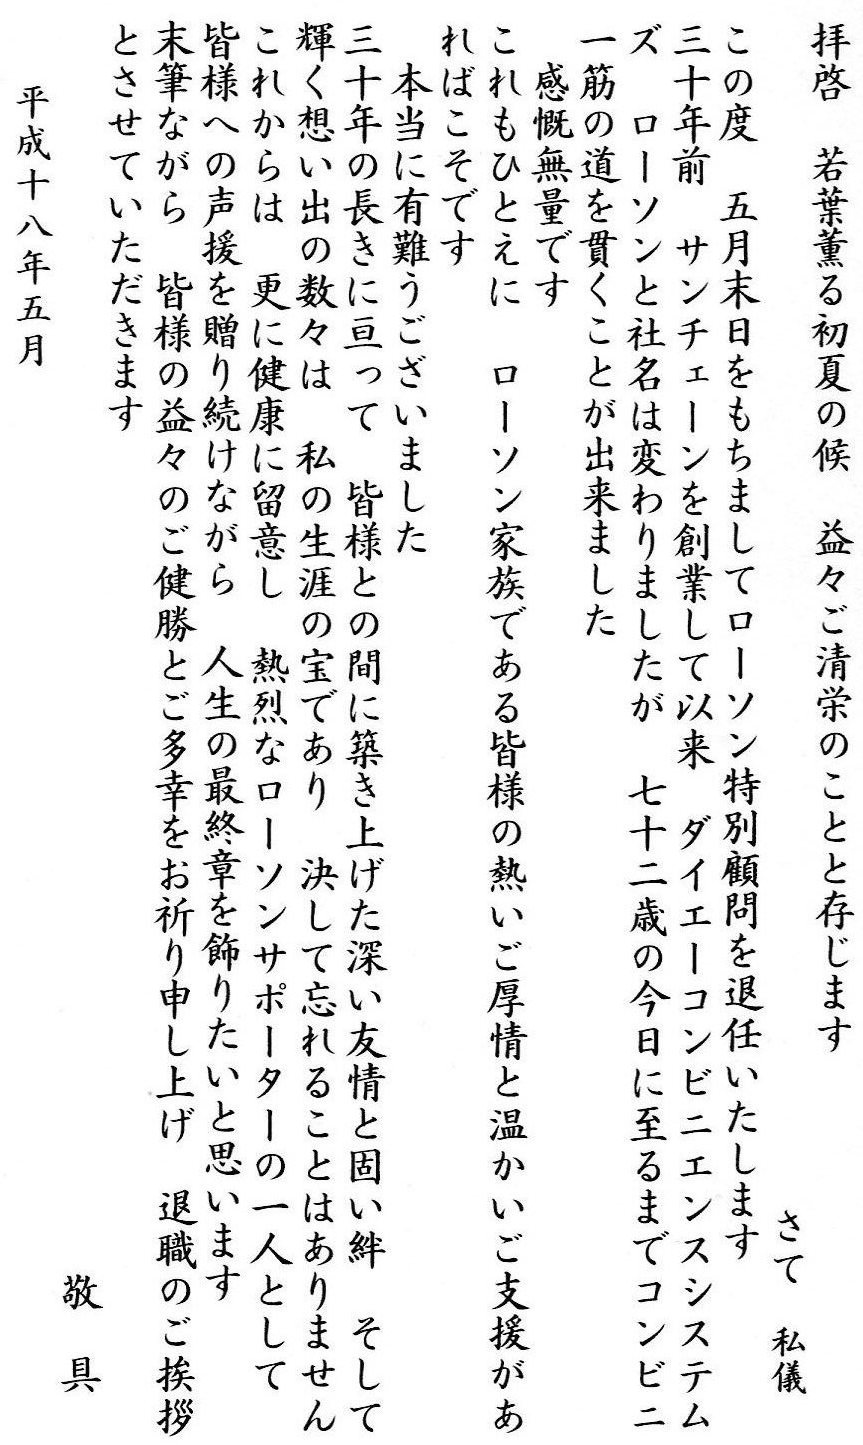 拝啓　若葉薫る初夏の候　益々ご清栄のことと存じます
さて　私儀
この度　五月末日をもちましてローソン特別顧問を退任いたします
三十年前　サンチェーンを創業して以来　ダイエーコンビニエンスシステム
ズ　ローソンと社名は変わりましたが　七十二歳の今日に至るまでコンビニ
一筋の道を貫くことが出来ました
感慨無量です
これもひとえに　ローソン家族である皆様の熱いご厚情と温かいご支援があ
ればこそです
本当に有難うございました
三十年の長きに亘って　皆様との間に築き上げた深い友情と固い絆　そして
輝く想い出の数々は　私の生涯の宝であり　決して忘れることはありません
これからは　更に健康に留意し　熱烈なローソンサポーターの一人として
皆様への声援を贈り続けながら　人生の最終章を飾りたいと思います
末筆ながら　皆様の益々のご健勝とご多幸をお祈り申し上げ　退職のご挨拶
とさせていただきます
敬具
平成十八年五月